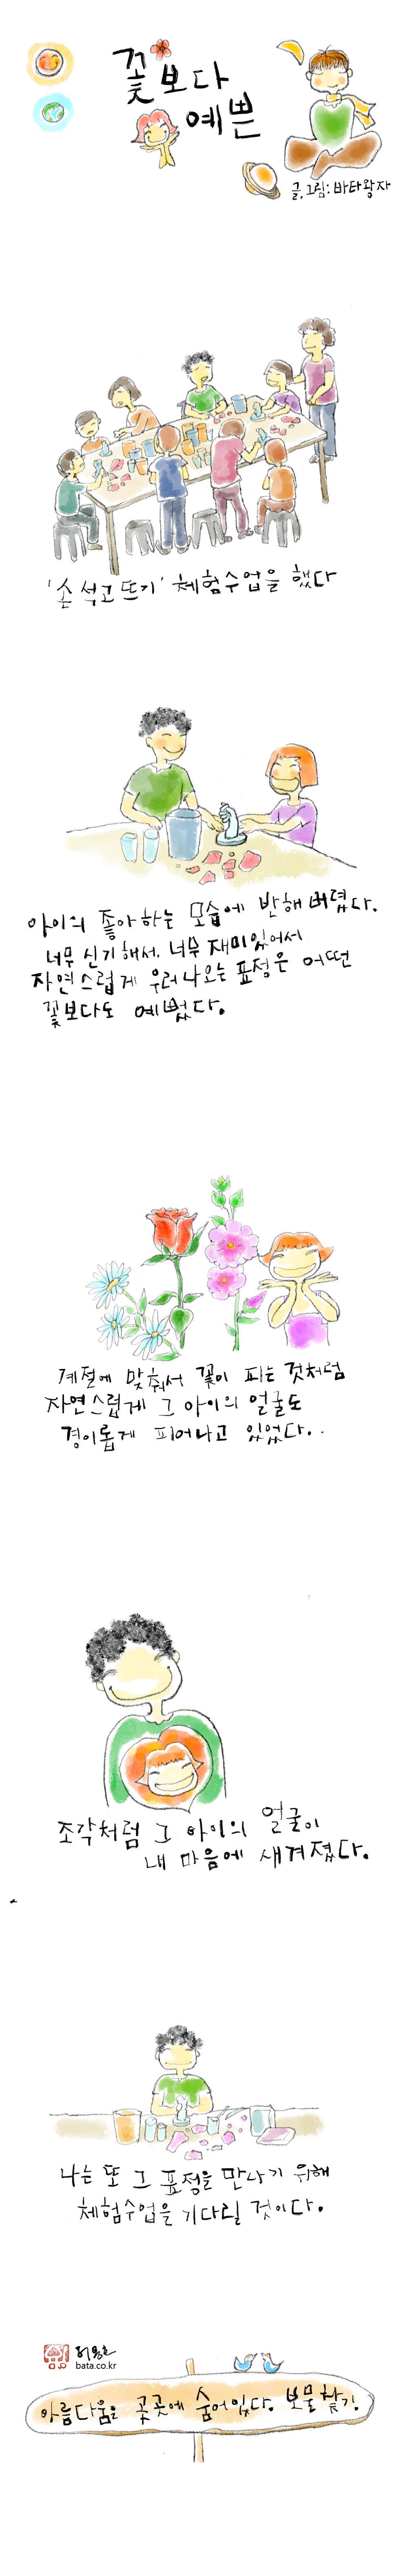 꽃보다
예쁜
글, 그림: 바타왕자
'손 석고 뜨기' 체험수업을 했다
아이의 좋아하는 모습에 반해 버렸다.
너무 신기해서, 너무 재미있어서
자연스럽게 우러나오는 표정은 어떤
꽃보다도 예뻤다.
계절에 맞춰서 꽃이 피는 것처럼
자연스럽게 그 아이의 얼굴도
경이롭게 피어나고 있었다..
조각처럼 그 아이의 얼굴이
내 마음에 새겨졌다.
나는 또 그 표정을 만나기 위해
체험수업을 기다릴 것이다.
bata.co.kr
아름다움은 곳곳에 숨어있다. 보물찾기!